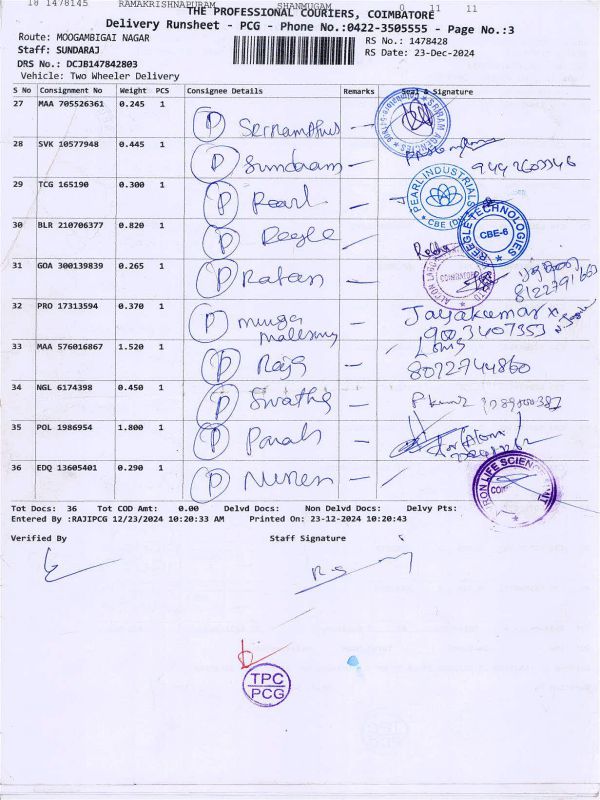 18 1478145 RAMAKRISHNAPURAM SHANMUGAM 0 11 11
THE PROFESSIONAL COURIERS, COIMBATORE
Delivery Runsheet - PCG - Phone No.:0422-3505555 - Page No.:3
Route: MOOGAMBIGAI NAGAR RS No.: 1478428
Staff: SUNDARAJ RS Date: 23-Dec-2024
DRS No.: DCJB147842803
Vehicle: Two Wheeler Delivery
S No Consignment No Weight PCS Consignee Details Remarks Seal & Signature
27 MAA 705526361 0.245 1 P
SRIRAM AGENCIES
28 SVK 10577948 0.445 1 P Sundaram
29 TCG 165190 0.300 1 P Pearl
PEARL INDUSTRIALS
CBE
30 BLR 210706377 0.820 1 P Reegle
REEGLE TECHNOLOGIES
CBE-6
31 GOA 300139839 0.265 1 P Ratan
32 PRO 17313594 0.370 1 P Jayakumar
9003407353
33 MAA 576016867 1.520 1 P Raja
8072744860
34 NGL 6174398 0.450 1 P Swathy
35 POL 1986954 1.800 1 P
36 EDQ 13605401 0.290 1 P
LIFE SCIENCE
Tot Docs: 36 Tot COD Amt: 0.00 Delvd Docs: Non Delvd Docs: Delvy Pts:
Entered By :RAJIPCG 12/23/2024 10:20:33 AM Printed On: 23-12-2024 10:20:43
Verified By Staff Signature
TPC
PCG